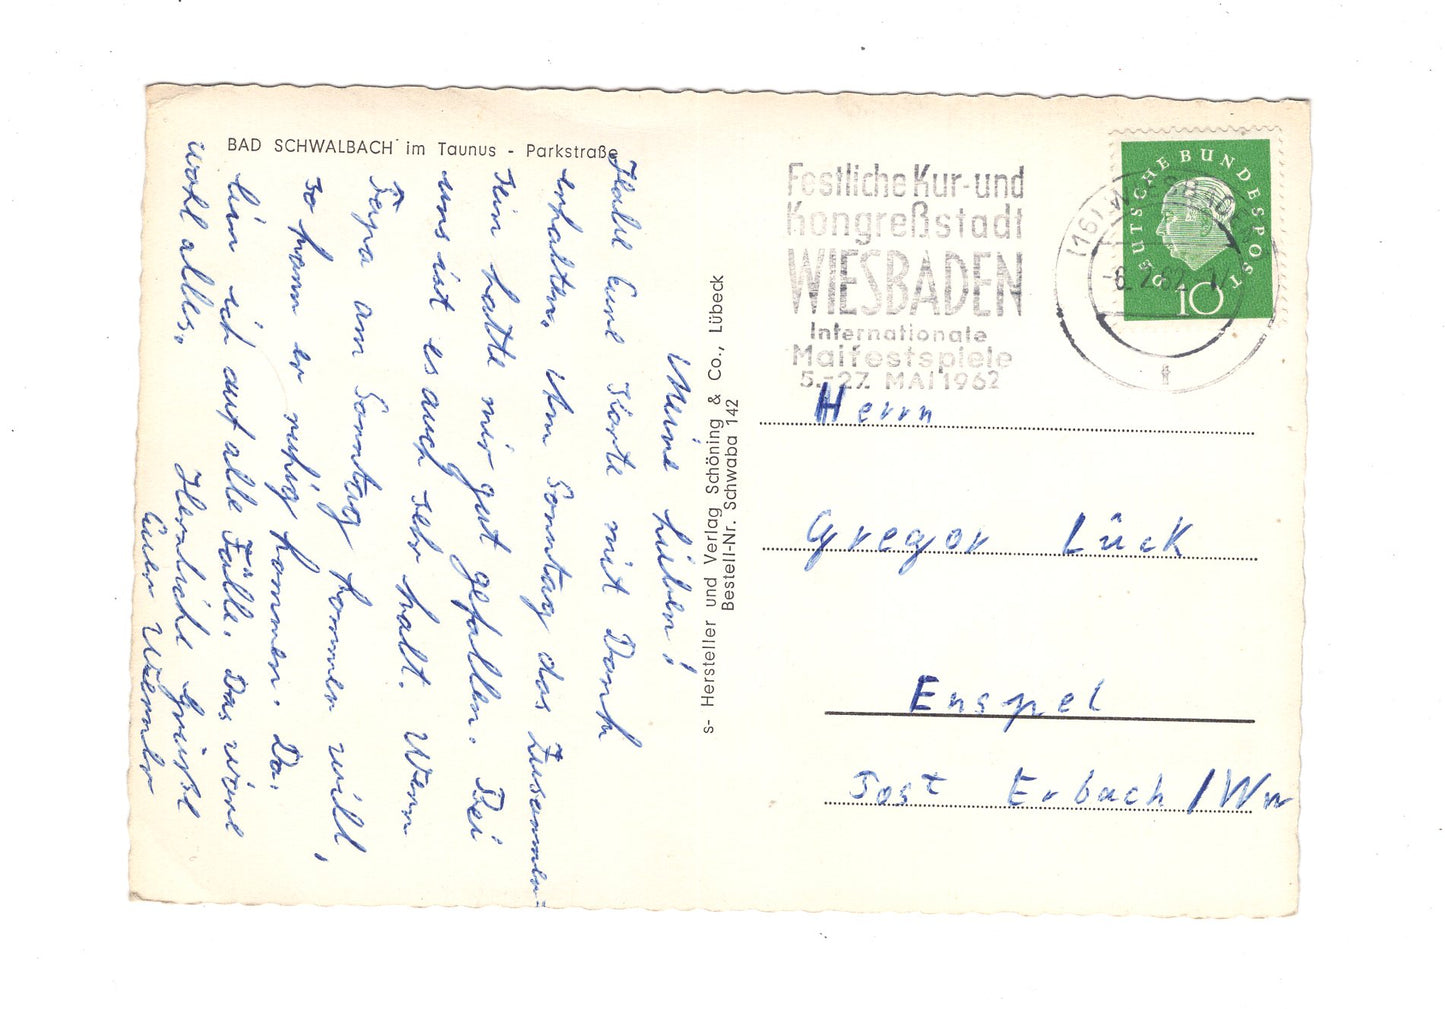 BAD SCHWALBACH im Taunus - Parkstraße
Meine Lieben!
Habe Eure Karte mit Dank
erhalten. Am Sonntag das Zusammen-
sein hatte mir gut gefallen. Bei
uns ist es auch sehr kalt. Wenn
Papa am Sonntag kommen will,
so kann er ruhig kommen. Da
bin ich auf alle Fälle. Das wäre
wohl alles.
Herzliche Grüße
Euer Werner
s- Hersteller und Verlag Schöning & Co., Lübeck
Bestell-Nr. Schwaba 142
Festliche Kur- und
Kongreßstadt
WIESBADEN
Internationale
Maifestspiele
5.-27. MAI 1962
(16) WIESBADEN
-8.2.62
t
DEUTSCHE BUNDESPOST
10
Herrn
Gregor Lück
Enspel
Post Erbach/Ww